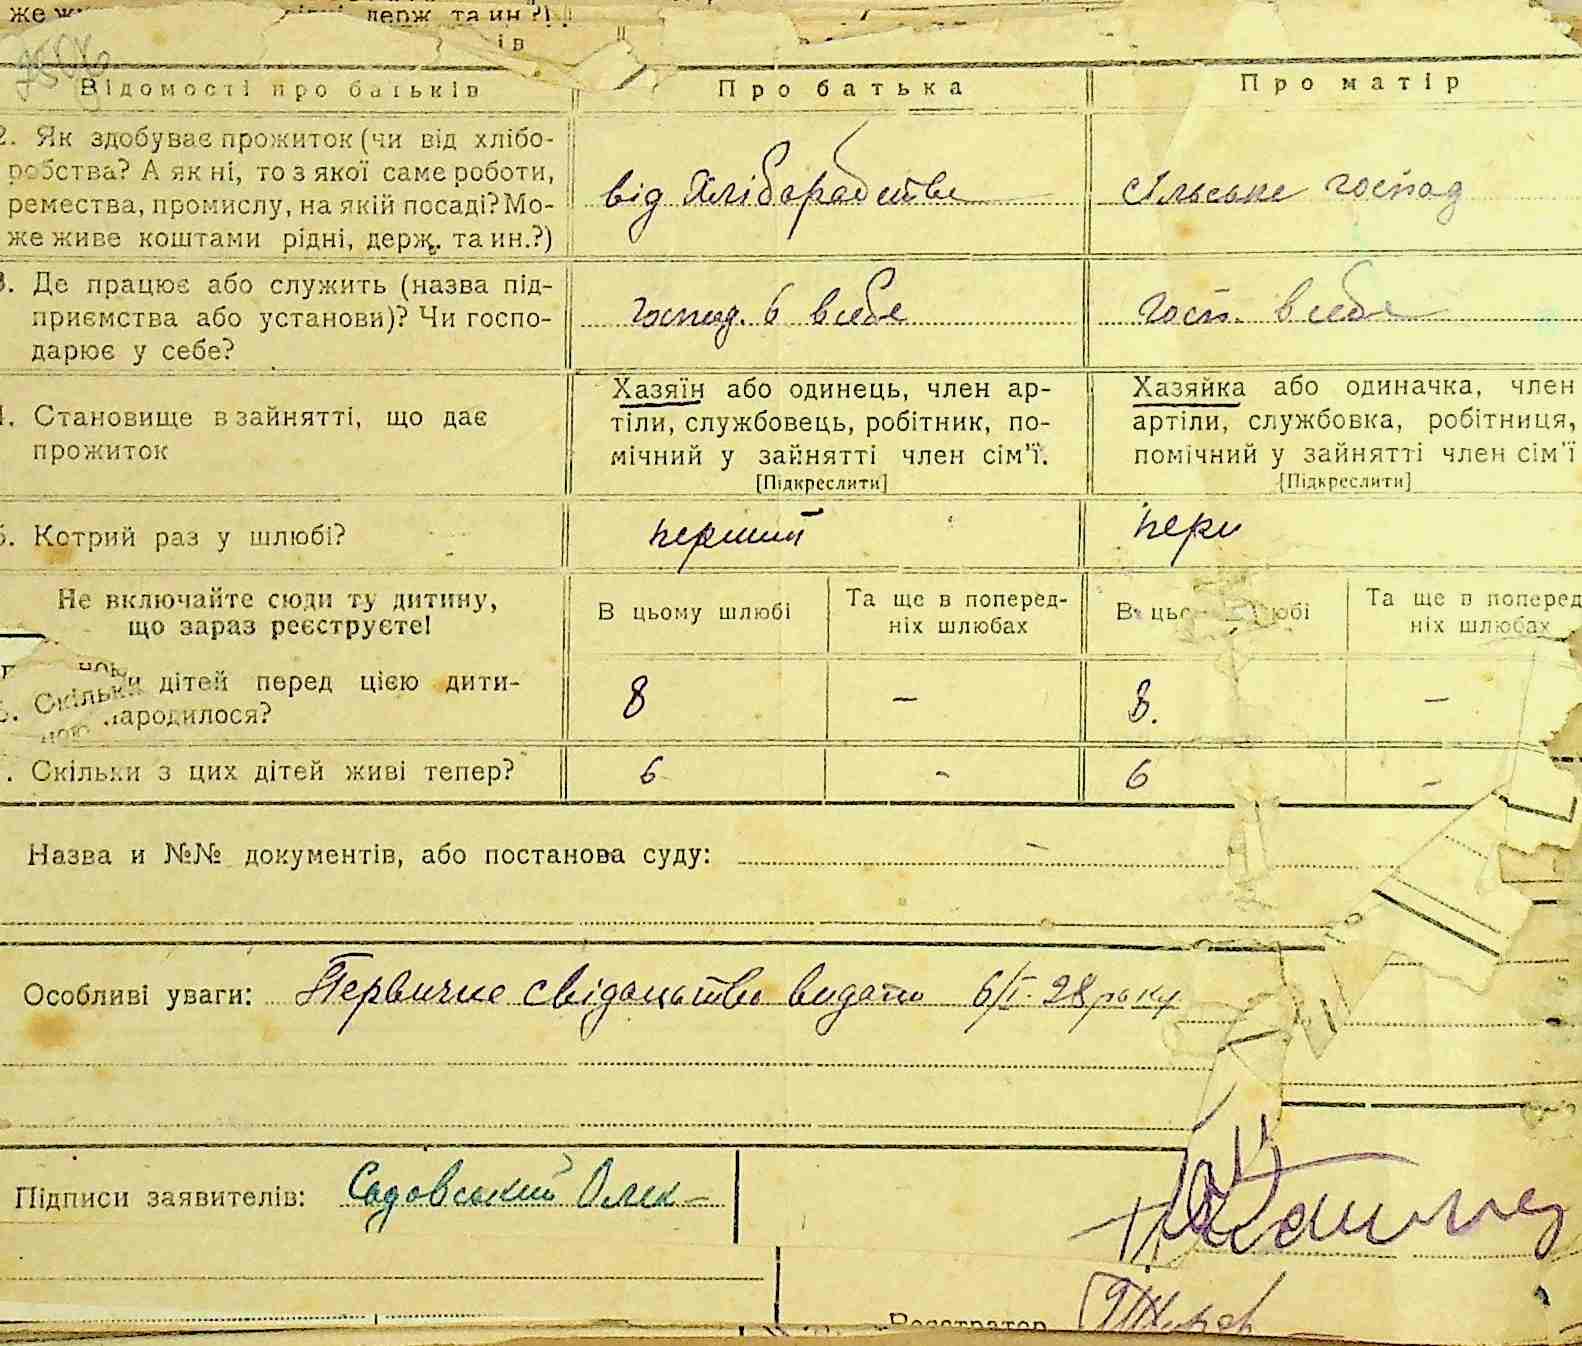 же живе коштами рідні, держ. та ин.?)
Відомості про батьків
Про батька
Про матір
2. Як здобуває прожиток (чи від хлібо-
робства? А як ні, то з якої саме роботи,
ремества, промислу, на якій посаді? Мо-
же живе коштами рідні, держ. та ин.?)
від хліборобства
сільське господ
3. Де працює або служить (назва під-
приємства або установи)? Чи госпо-
дарює у себе?
господ. в себе
госп. в себе
4. Становище в зайнятті, що дає
прожиток
Хазяїн або одинець, член ар-
тіли, службовець, робітник, по-
мічний у зайнятті член сім'ї.
[Підкреслити]
Хазяйка або одиначка, член
артіли, службовка, робітниця,
помічний у зайнятті член сім'ї
[Підкреслити]
5. Котрий раз у шлюбі?
перший
перш
Не включайте сюди ту дитину,
що зараз реєструєте!
В цьому шлюбі
Та ще в поперед-
ніх шлюбах
В цьо шлюбі
Та ще в поперед
ніх шлюбах
Скільки дітей перед цією дити-
ною народилося?
8
–
8.
–
. Скільки з цих дітей живі тепер?
6
-
6
-
Назва и №№ документів, або постанова суду: –
Особливі уваги: Первичне свідоцьтво видати 6/I-28 року
Підписи заявителів: Садовський Олек-
Реєстратор